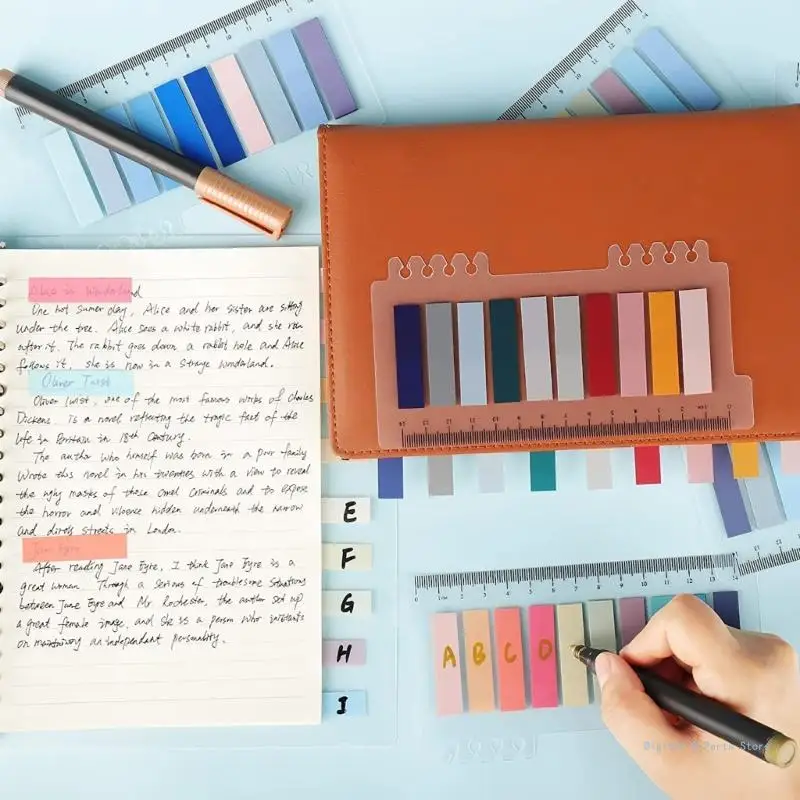 Alice in Wonderland
One hot sumer day, Alice and her sister are sitting
under the tree. Alice sees a white rabbit, and she run
after it. The rabbit goes down a rabbit hole and Alice
follows it, she is now in a strange wonderland.
Oliver Twist
Oliver Twist, one of the most famous works of Charles
Dickens, is a novel reflecting the tragic fact of the
life in Britain in 18th Century.
The author who himself was born in a poor family
wrote this novel in his twenties with a view to reveal
the ugly masks of these cruel criminals and to expose
the horror and vilence hidden underneath the narrow
and dirty streets in London.
Jane Eyre
After reading Jane Eyre, I think Jane Eyre is a
great woman. Through a serious of troublesome situations
between Jane Eyre and Mr Rochester, the author set up
a great female image, and she is a person who insistants
on maintaining an independant personality.
E
F
G
H
I
A B C D
Digital & Parts Store